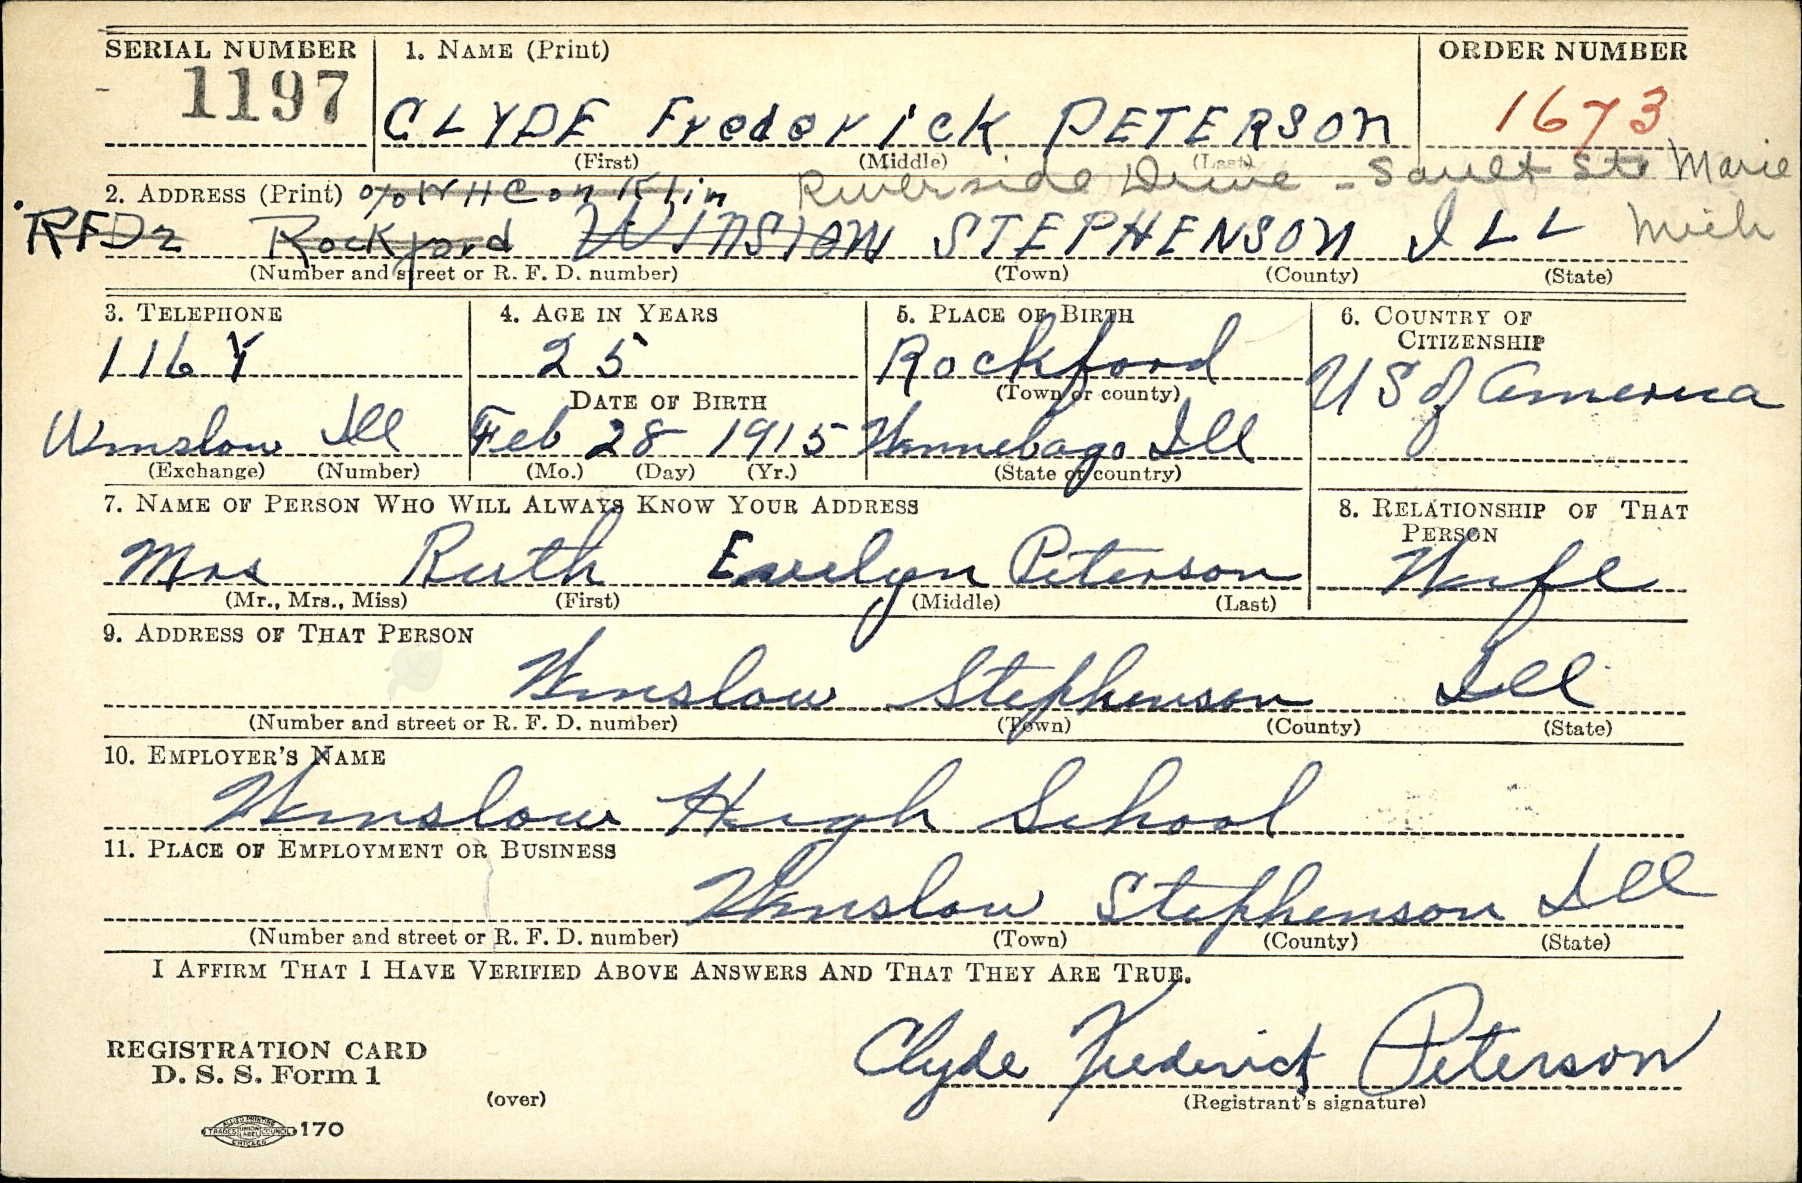 SERIAL NUMBER 1. NAME (Print) ORDER NUMBER
1197 CLYDE Frederick PETERSON 1673
(First) (Middle) (Last)
2. ADDRESS (Print) Riverside Drive - Sault Ste Marie
RFD2 Rockford WINSLOW STEPHENSON ILL Mich
(Number and street or R. F. D. number) (Town) (County) (State)
3. TELEPHONE 4. AGE IN YEARS 5. PLACE OF BIRTH 6. COUNTRY OF
CITIZENSHIP
116 Y 25 Rockford U S of America
DATE OF BIRTH (Town or county)
Winslow Ill Feb 28 1915 Winnebago Ill
(Exchange) (Number) (Mo.) (Day) (Yr.) (State or country)
7. NAME OF PERSON WHO WILL ALWAYS KNOW YOUR ADDRESS 8. RELATIONSHIP OF THAT
PERSON
Mrs Ruth Evelyn Peterson Wife
(Mr., Mrs., Miss) (First) (Middle) (Last)
9. ADDRESS OF THAT PERSON
Winslow Stephenson Ill
(Number and street or R. F. D. number) (Town) (County) (State)
10. EMPLOYER'S NAME
Winslow High School
11. PLACE OF EMPLOYMENT OR BUSINESS
Winslow Stephenson Ill
(Number and street or R. F. D. number) (Town) (County) (State)
I AFFIRM THAT I HAVE VERIFIED ABOVE ANSWERS AND THAT THEY ARE TRUE.
Clyde Frederick Peterson
REGISTRATION CARD
D. S. S. Form 1
(over) (Registrant's signature)
170